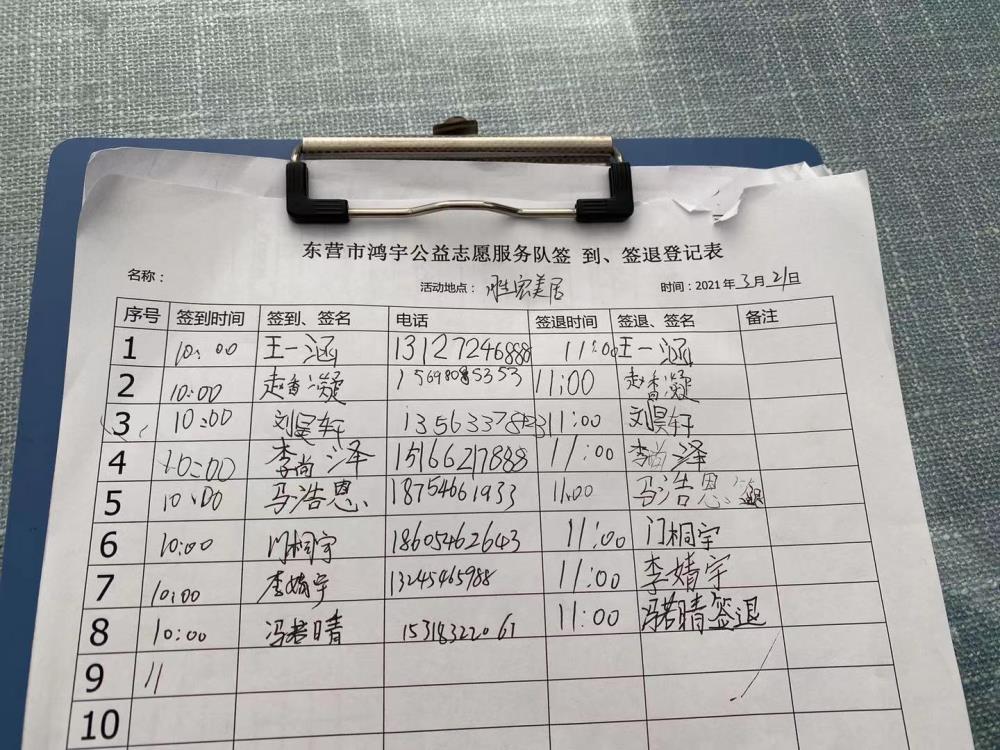 东营市鸿宇公益志愿服务队签 到、签退登记表
名称： 活动地点： 胜宏美居 时间：2021年3月21日
序号 签到时间 签到、签名 电话 签退时间 签退、签名 备注
1 10:00 王一涵 13127246888 11:00 王一涵
2 10:00 赵香凝 15698085353 11:00 赵香凝
3 10:00 刘昊轩 11:00 刘昊轩
4 10:00 李尚泽 15166217888 11:00 李尚泽
5 10:00 马浩恩 18754661933 11:00 马浩恩
6 10:00 门桐宇 18605462643 11:00 门桐宇
7 10:00 李婧宇 13245465988 11:00 李婧宇
8 10:00 冯若晴 15318322061 11:00 冯若晴签退
9 11
10